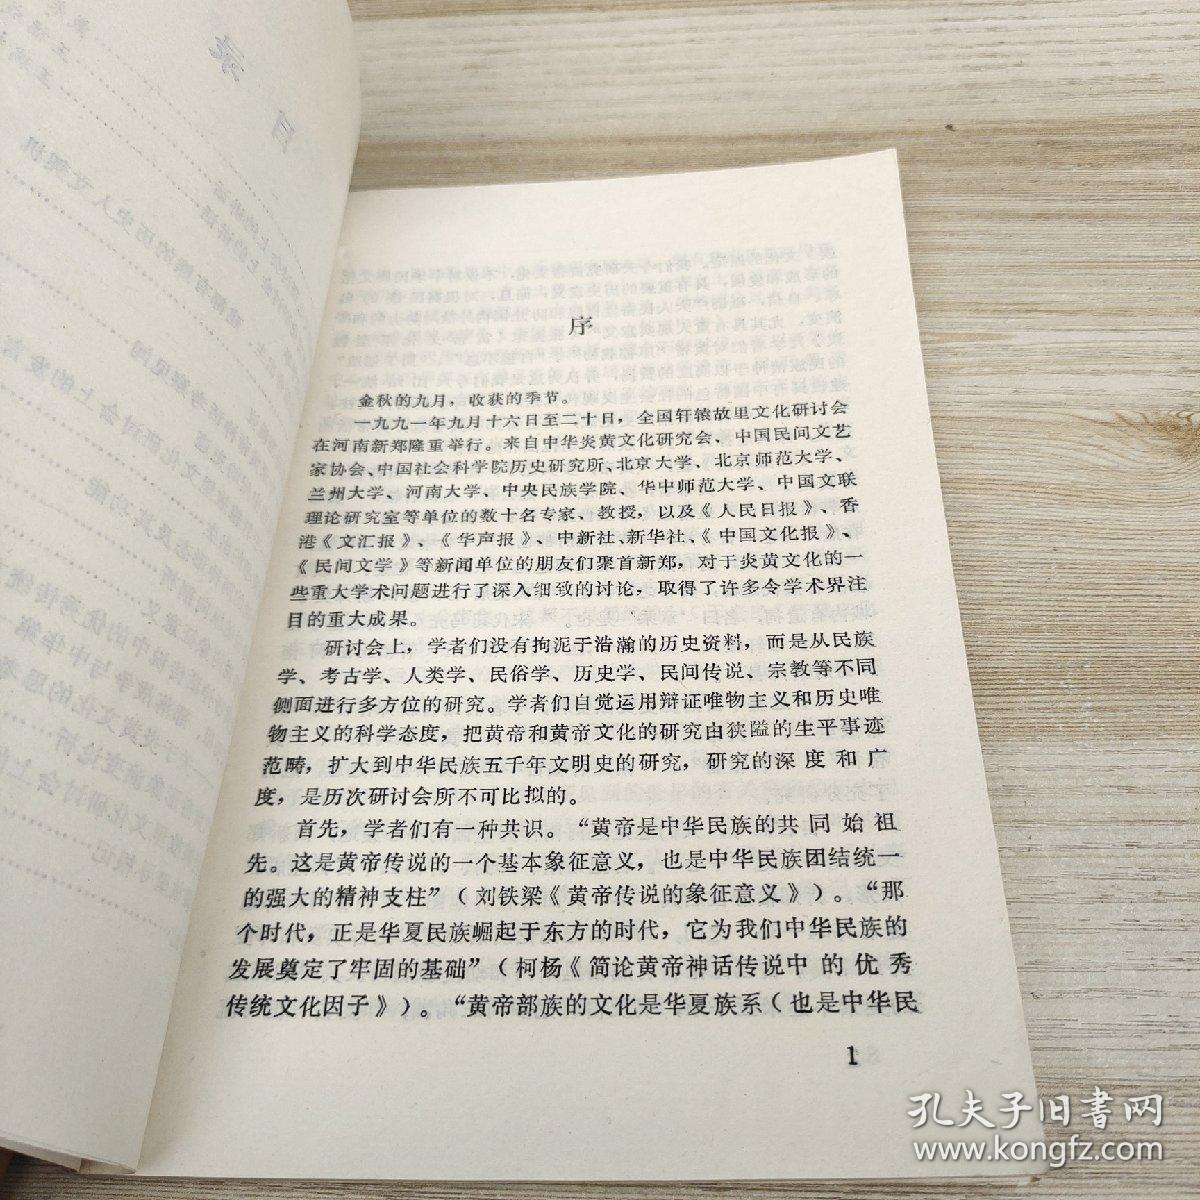 序
金秋的九月，收获的季节。
一九九一年九月十六日至二十日，全国轩辕故里文化研讨会
在河南新郑隆重举行。来自中华炎黄文化研究会、中国民间文艺
家协会、中国社会科学院历史研究所、北京大学、北京师范大学、
兰州大学、河南大学、中央民族学院、华中师范大学、中国文联
理论研究室等单位的数十名专家、教授，以及《人民日报》、香
港《文汇报》、《华声报》、中新社、新华社、《中国文化报》、
《民间文学》等新闻单位的朋友们聚首新郑，对于炎黄文化的一
些重大学术问题进行了深入细致的讨论，取得了许多令学术界注
目的重大成果。
研讨会上，学者们没有拘泥于浩瀚的历史资料，而是从民族
学、考古学、人类学、民俗学、历史学、民间传说、宗教等不同
侧面进行多方位的研究。学者们自觉运用辩证唯物主义和历史唯
物主义的科学态度，把黄帝和黄帝文化的研究由狭隘的生平事迹
范畴，扩大到中华民族五千年文明史的研究，研究的深度和广
度，是历次研讨会所不可比拟的。
首先，学者们有一种共识。“黄帝是中华民族的共同始祖
先。这是黄帝传说的一个基本象征意义，也是中华民族团结统一
的强大的精神支柱”（刘铁梁《黄帝传说的象征意义》）。“那
个时代，正是华夏民族崛起于东方的时代，它为我们中华民族的
发展奠定了牢固的基础”（柯杨《简论黄帝神话传说中的优秀
传统文化因子》）。“黄帝部族的文化是华夏族系（也是中华民
1
孔夫子旧书网
www.kongfz.com